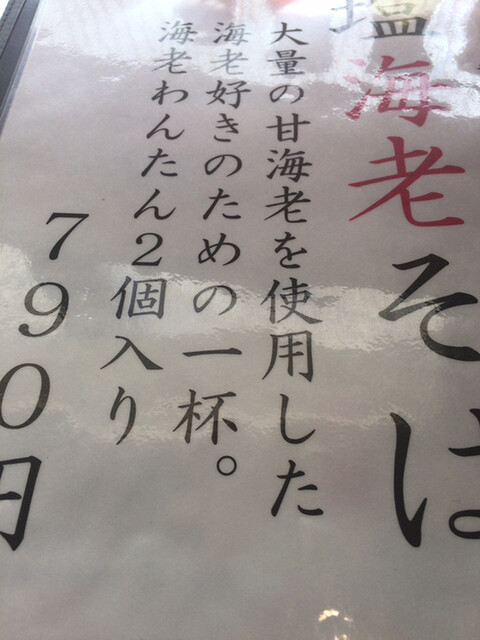 塩海老そば
大量の甘海老を使用した
海老好きのための一杯。
海老わんたん2個入り
790円